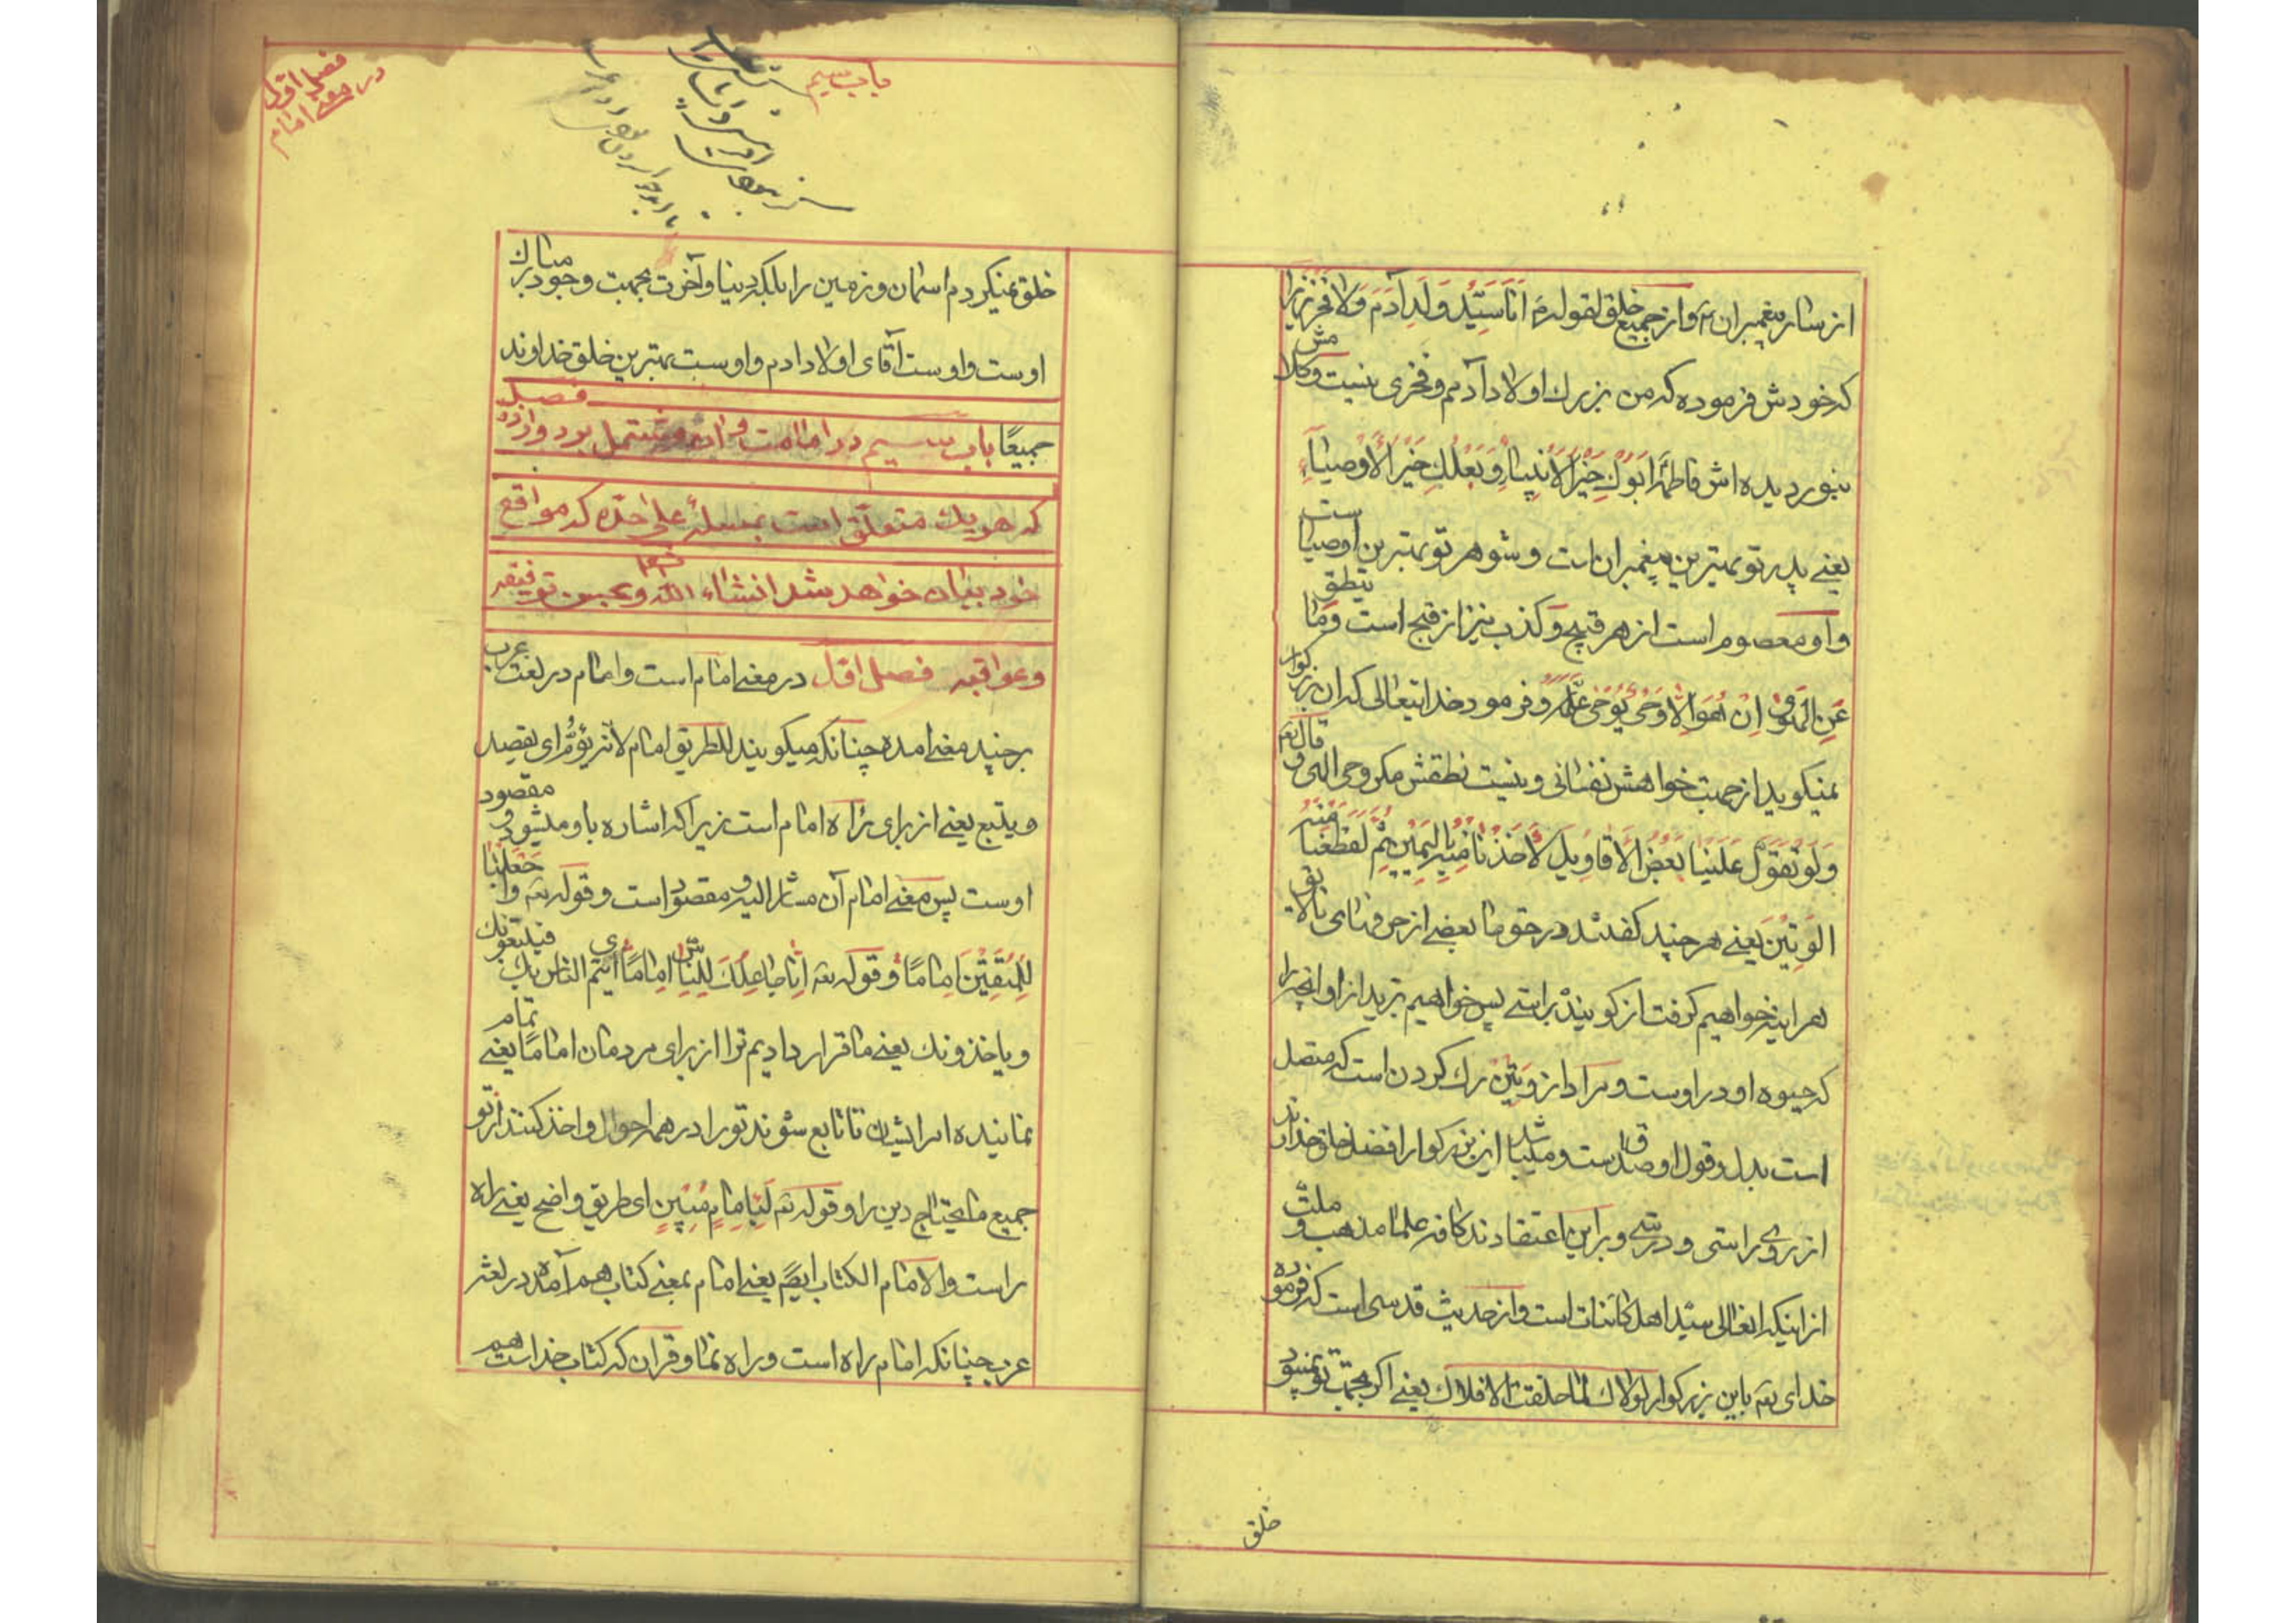 از سایر پیغمبران و از جمیع خلق لقوله انا سَیِّدُ وَلَدِ آدَمَ وَلا فَخْرَ زیرا
که خودش فرموده که من بزرك اولاد آدمم و فخری نیست و کلامش
بنور دیده اش فاطمه ابوكِ خَیْرُ الاَنْبِیاءِ وَ بَعْلُكِ خَیْرُ الاَوْصِیاءِ
یعنے پدر تو بهترین پیغمبران است و شوهر تو بهترین اوصیاست
و او معصوم است از هر قبیح و کذب نیز از قبیح است وَمٰا ینطق
عَنِ الهَویٰ اِنْ هُوَ اِلاّ وَحْیٌ یُوحیٰ و فرمود خدایتعالی که ان بزرکوار
نمیکوید از جهت خواهش نفسانی و نیست نطقش مکر وحی الهی و قال تع
وَلَوْ تَقَوَّلَ عَلَیْنٰا بَعْضَ الاَقٰاوِیلِ لاَخَذْنٰا مِنْهُ بِالیَمِینِ ثُمَّ لَقَطَعْنٰا مِنْهُ
الوَتِینَ یعنے هر چند کفتند در حق ما بعضے از حرفهای
هر اینه خواهیم کرفت از کوینده براستے پس خواهیم برید از او انچه را
که حیوه او در اوست و مراد از وَتِین رك کردن است که متصل
است بدل و قول او صدقست و میباشد این بزرکوار افضل خلق خداوند
از روی راستی و درستے و براین اعتقادند کافه علما مذهب و ملت
از اینکه انعالی سیّد اهل کائنات است و از حدیث قدسی است که فرموده
خدای تع باین بزرکوار لولاك لما خلقت الافلاك یعنے اکر بجهت تو نمیبود
خلق
باب سیم
فصل اول
در معنے امام
خلق نمیکردم اسمان و زمین را بلکه دنیا و آخرت بجهت وجود مبارك
اوست و اوست آقای اولاد ادم و اوست بهترین خلق خداوند
جمیعًا باب سیم در امامت و مشتمل بر دوازده فصل
که هر یك متعلّق است بمسئلهٔ علی حدّه که در مواقع
خود بیان خواهد شد انشاء الله و بحسن توفیقه
وعواقبه فصل اوّل در معنے امام است و امام در لغت عرب
بر چند معنے امده چنانکه میکویند للطریق امام لانّه یؤمُّ ای یقصد
و یتبع یعنے از برای راه امام است زیرا که اشاره باو میشود و مقصود
اوست پس معنے امام آن مشار الیه و مقصود است و قوله تع واجعلنٰا
لِلمُتَّقِینَ اِمٰامًا و قوله تع اِنّی جٰاعِلُكَ لِلنّٰاسِ اِمٰامًا ای یأتم الناس بك فیتبعونك
و یاخذونك یعنے ما قرار دادیم ترا از برای مردمان امامًا یعنے تمام
نماینده امر ایشان تا تابع شوند تو را در همه احوال و اخذ کنند از تو
جمیع ما یحتاج دین را و قوله تع لَبِاِمٰامٍ مُبِینٍ ای طریق واضح یعنے راه
راست و الامام الکتاب ایضً یعنے امام بمعنے کتاب هم آمده در لغت
عرب چنانکه امام راه است و راه نما و قران که کتاب خداست هم